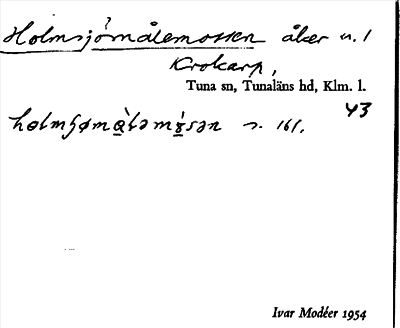 Holmsjömålemossen åker n. 1
Krokarp,
Tuna sn, Tunaläns hd, Klm. l.
43
s. 161.
Ivar Modéer 1954